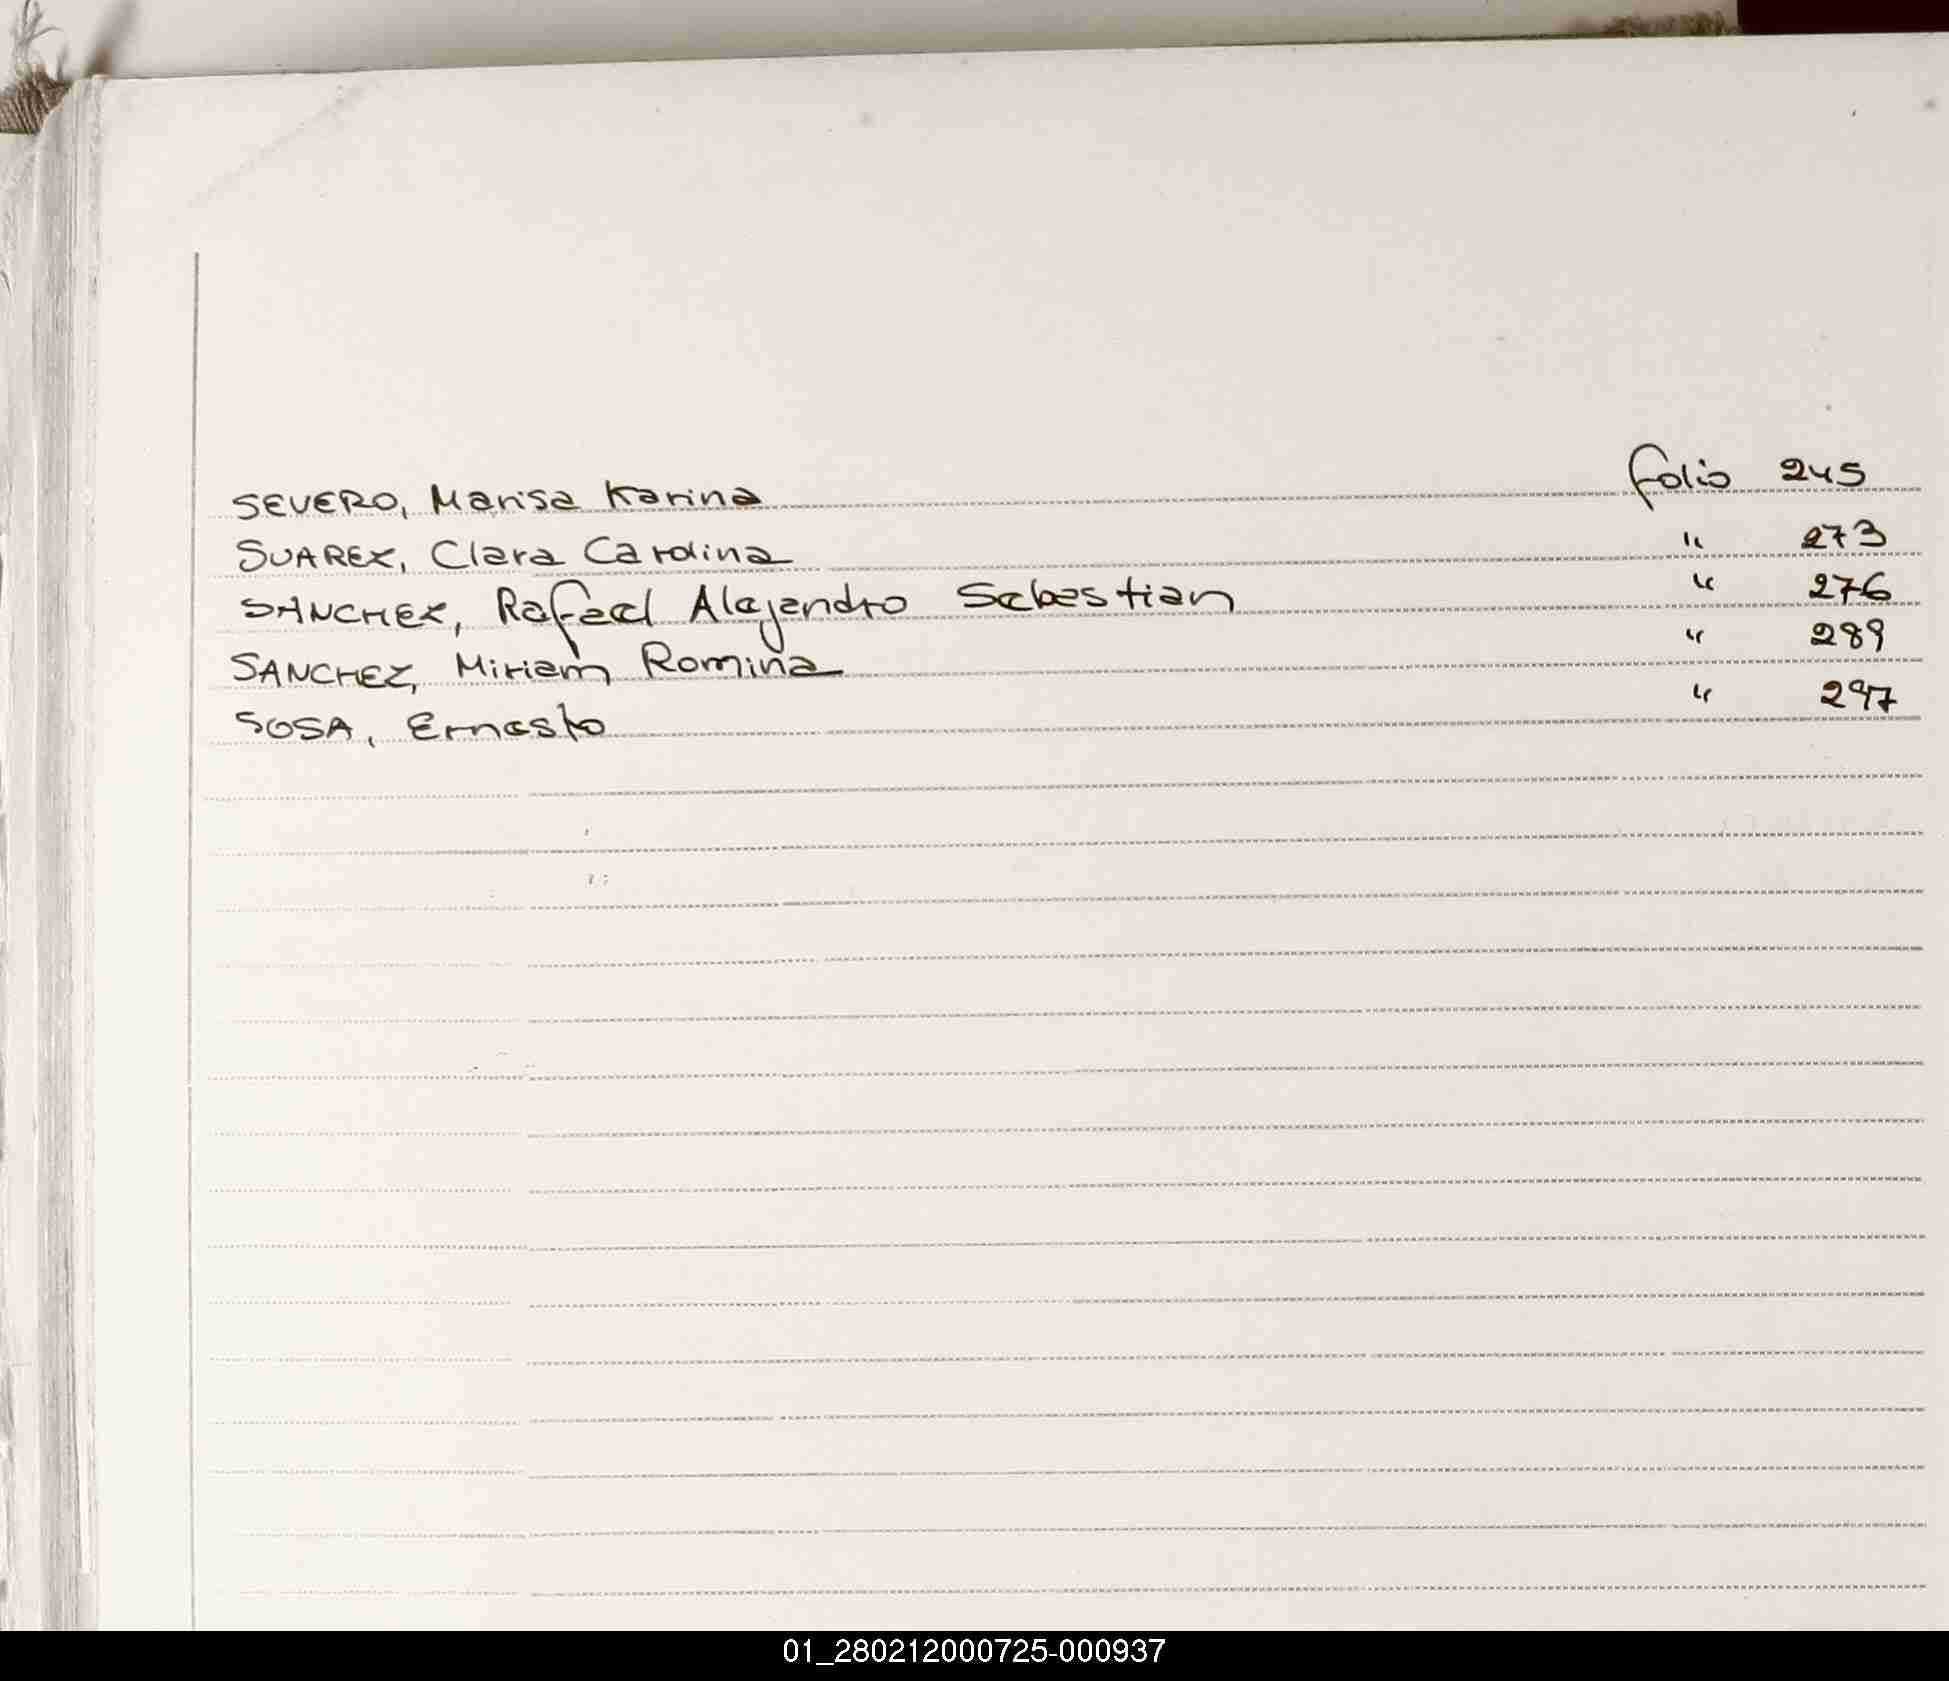 SEVERO, Marisa Karina folio 245
SUAREZ, Clara Carolina " 273
SANCHEZ, Rafael Alejandro Sebastian " 276
SANCHEZ, Miriam Romina " 289
SOSA, Ernesto " 297
01_280212000725-000937